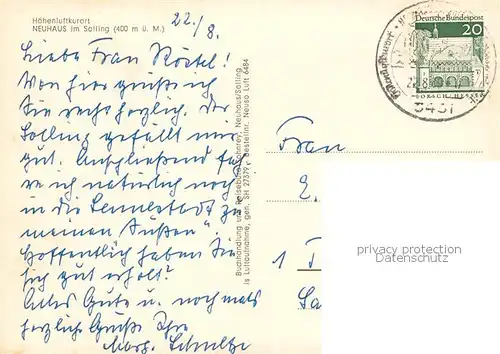 Höhenluftkurort
NEUHAUS im Solling (400 m ü. M.)
22./8.
Liebe Frau Röstel!
Von hier grüße ich
Sie recht herzlich. Der
Solling gefällt mir
gut. Anschließend fah-
re ich natürlich noch
in die Lennestadt zu
meinen
Hoffentlich haben Sie
sich gut erholt?
Alles Gute u. nochmals
herzliche Grüße Ihre
Marg. Schultze
Buchhandlung und Reisebüro Neuhaus/Solling
Is Luftaufnahme, gen. SH 27379, Bestellnr. Neuso Luft 6484
Deutsche Bundespost
20
LORSCH/HESSEN
3451
Frau
E.
1
privacy protection
Datenschutz